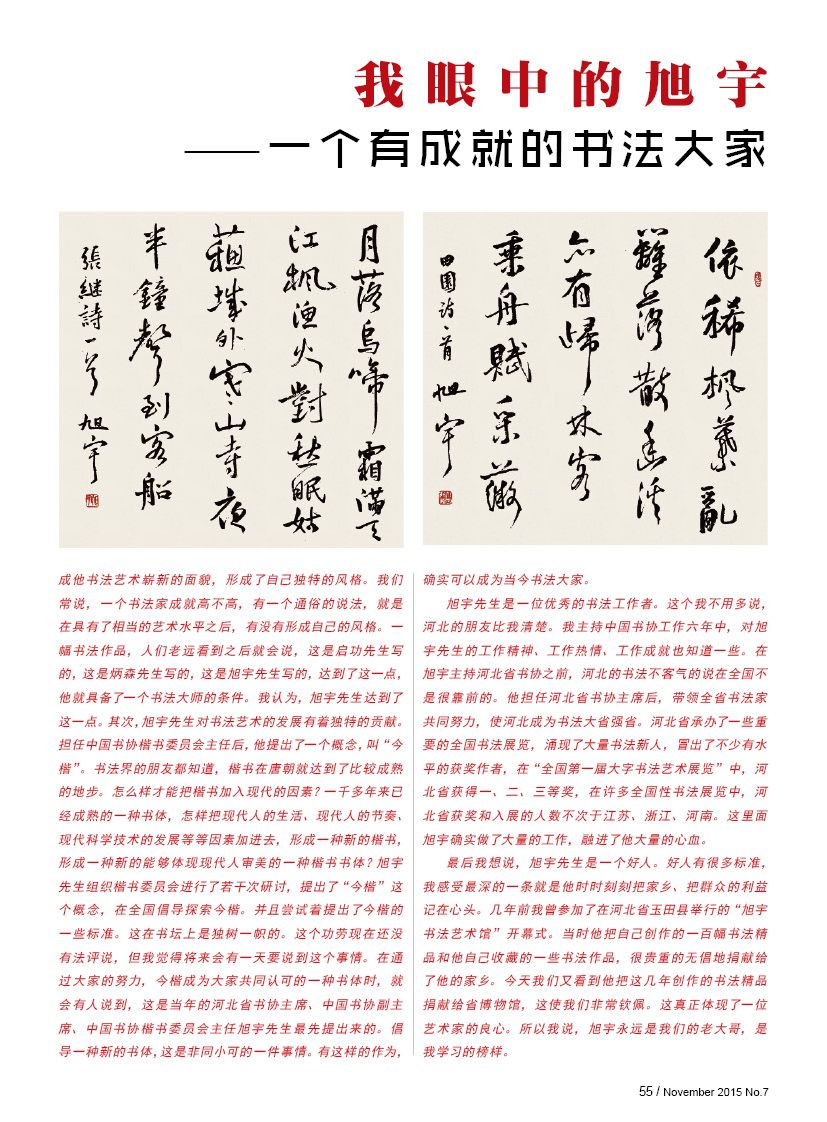 我眼中的旭宇
——一个有成就的书法大家
月落烏啼霜滿天
江楓漁火對愁眠姑
蘓城外寒山寺夜
半鐘聲到客船
張繼詩一首 旭宇
依稀楓葉亂
籬落散幽溪
亦有歸林客
乘舟賦采薇
田園詩一首 旭宇
成他书法艺术崭新的面貌，形成了自己独特的风格。我们
常说，一个书法家成就高不高，有一个通俗的说法，就是
在具有了相当的艺术水平之后，有没有形成自己的风格。一
幅书法作品，人们老远看到之后就会说，这是启功先生写
的，这是炳森先生写的，这是旭宇先生写的，达到了这一点，
他就具备了一个书法大师的条件。我认为，旭宇先生达到了
这一点。其次，旭宇先生对书法艺术的发展有着独特的贡献。
担任中国书协楷书委员会主任后，他提出了一个概念，叫“今
楷”。书法界的朋友都知道，楷书在唐朝就达到了比较成熟
的地步。怎么样才能把楷书加入现代的因素？一千多年来已
经成熟的一种书体，怎样把现代人的生活、现代人的节奏、
现代科学技术的发展等等因素加进去，形成一种新的楷书，
形成一种新的能够体现现代人审美的一种楷书书体？旭宇
先生组织楷书委员会进行了若干次研讨，提出了“今楷”这
个概念，在全国倡导探索今楷。并且尝试着提出了今楷的
一些标准。这在书坛上是独树一帜的。这个功劳现在还没
有法评说，但我觉得将来会有一天要说到这个事情。在通
过大家的努力，今楷成为大家共同认可的一种书体时，就
会有人说到，这是当年的河北省书协主席、中国书协副主
席、中国书协楷书委员会主任旭宇先生最先提出来的。倡
导一种新的书体，这是非同小可的一件事情。有这样的作为，
确实可以成为当今书法大家。
旭宇先生是一位优秀的书法工作者。这个我不用多说，
河北的朋友比我清楚。我主持中国书协工作六年中，对旭
宇先生的工作精神、工作热情、工作成就也知道一些。在
旭宇主持河北省书协之前，河北的书法不客气的说在全国不
是很靠前的。他担任河北省书协主席后，带领全省书法家
共同努力，使河北成为书法大省强省。河北省承办了一些重
要的全国书法展览，涌现了大量书法新人，冒出了不少有水
平的获奖作者，在“全国第一届大字书法艺术展览”中，河
北省获得一、二、三等奖，在许多全国性书法展览中，河
北省获奖和入展的人数不次于江苏、浙江、河南。这里面
旭宇确实做了大量的工作，融进了他大量的心血。
最后我想说，旭宇先生是一个好人。好人有很多标准，
我感受最深的一条就是他时时刻刻把家乡、把群众的利益
记在心头。几年前我曾参加了在河北省玉田县举行的“旭宇
书法艺术馆”开幕式。当时他把自己创作的一百幅书法精
品和他自己收藏的一些书法作品，很贵重的无偿地捐献给
了他的家乡。今天我们又看到他把这几年创作的书法精品
捐献给省博物馆，这使我们非常钦佩。这真正体现了一位
艺术家的良心。所以我说，旭宇永远是我们的老大哥，是
我学习的榜样。
55 / November 2015 No.7